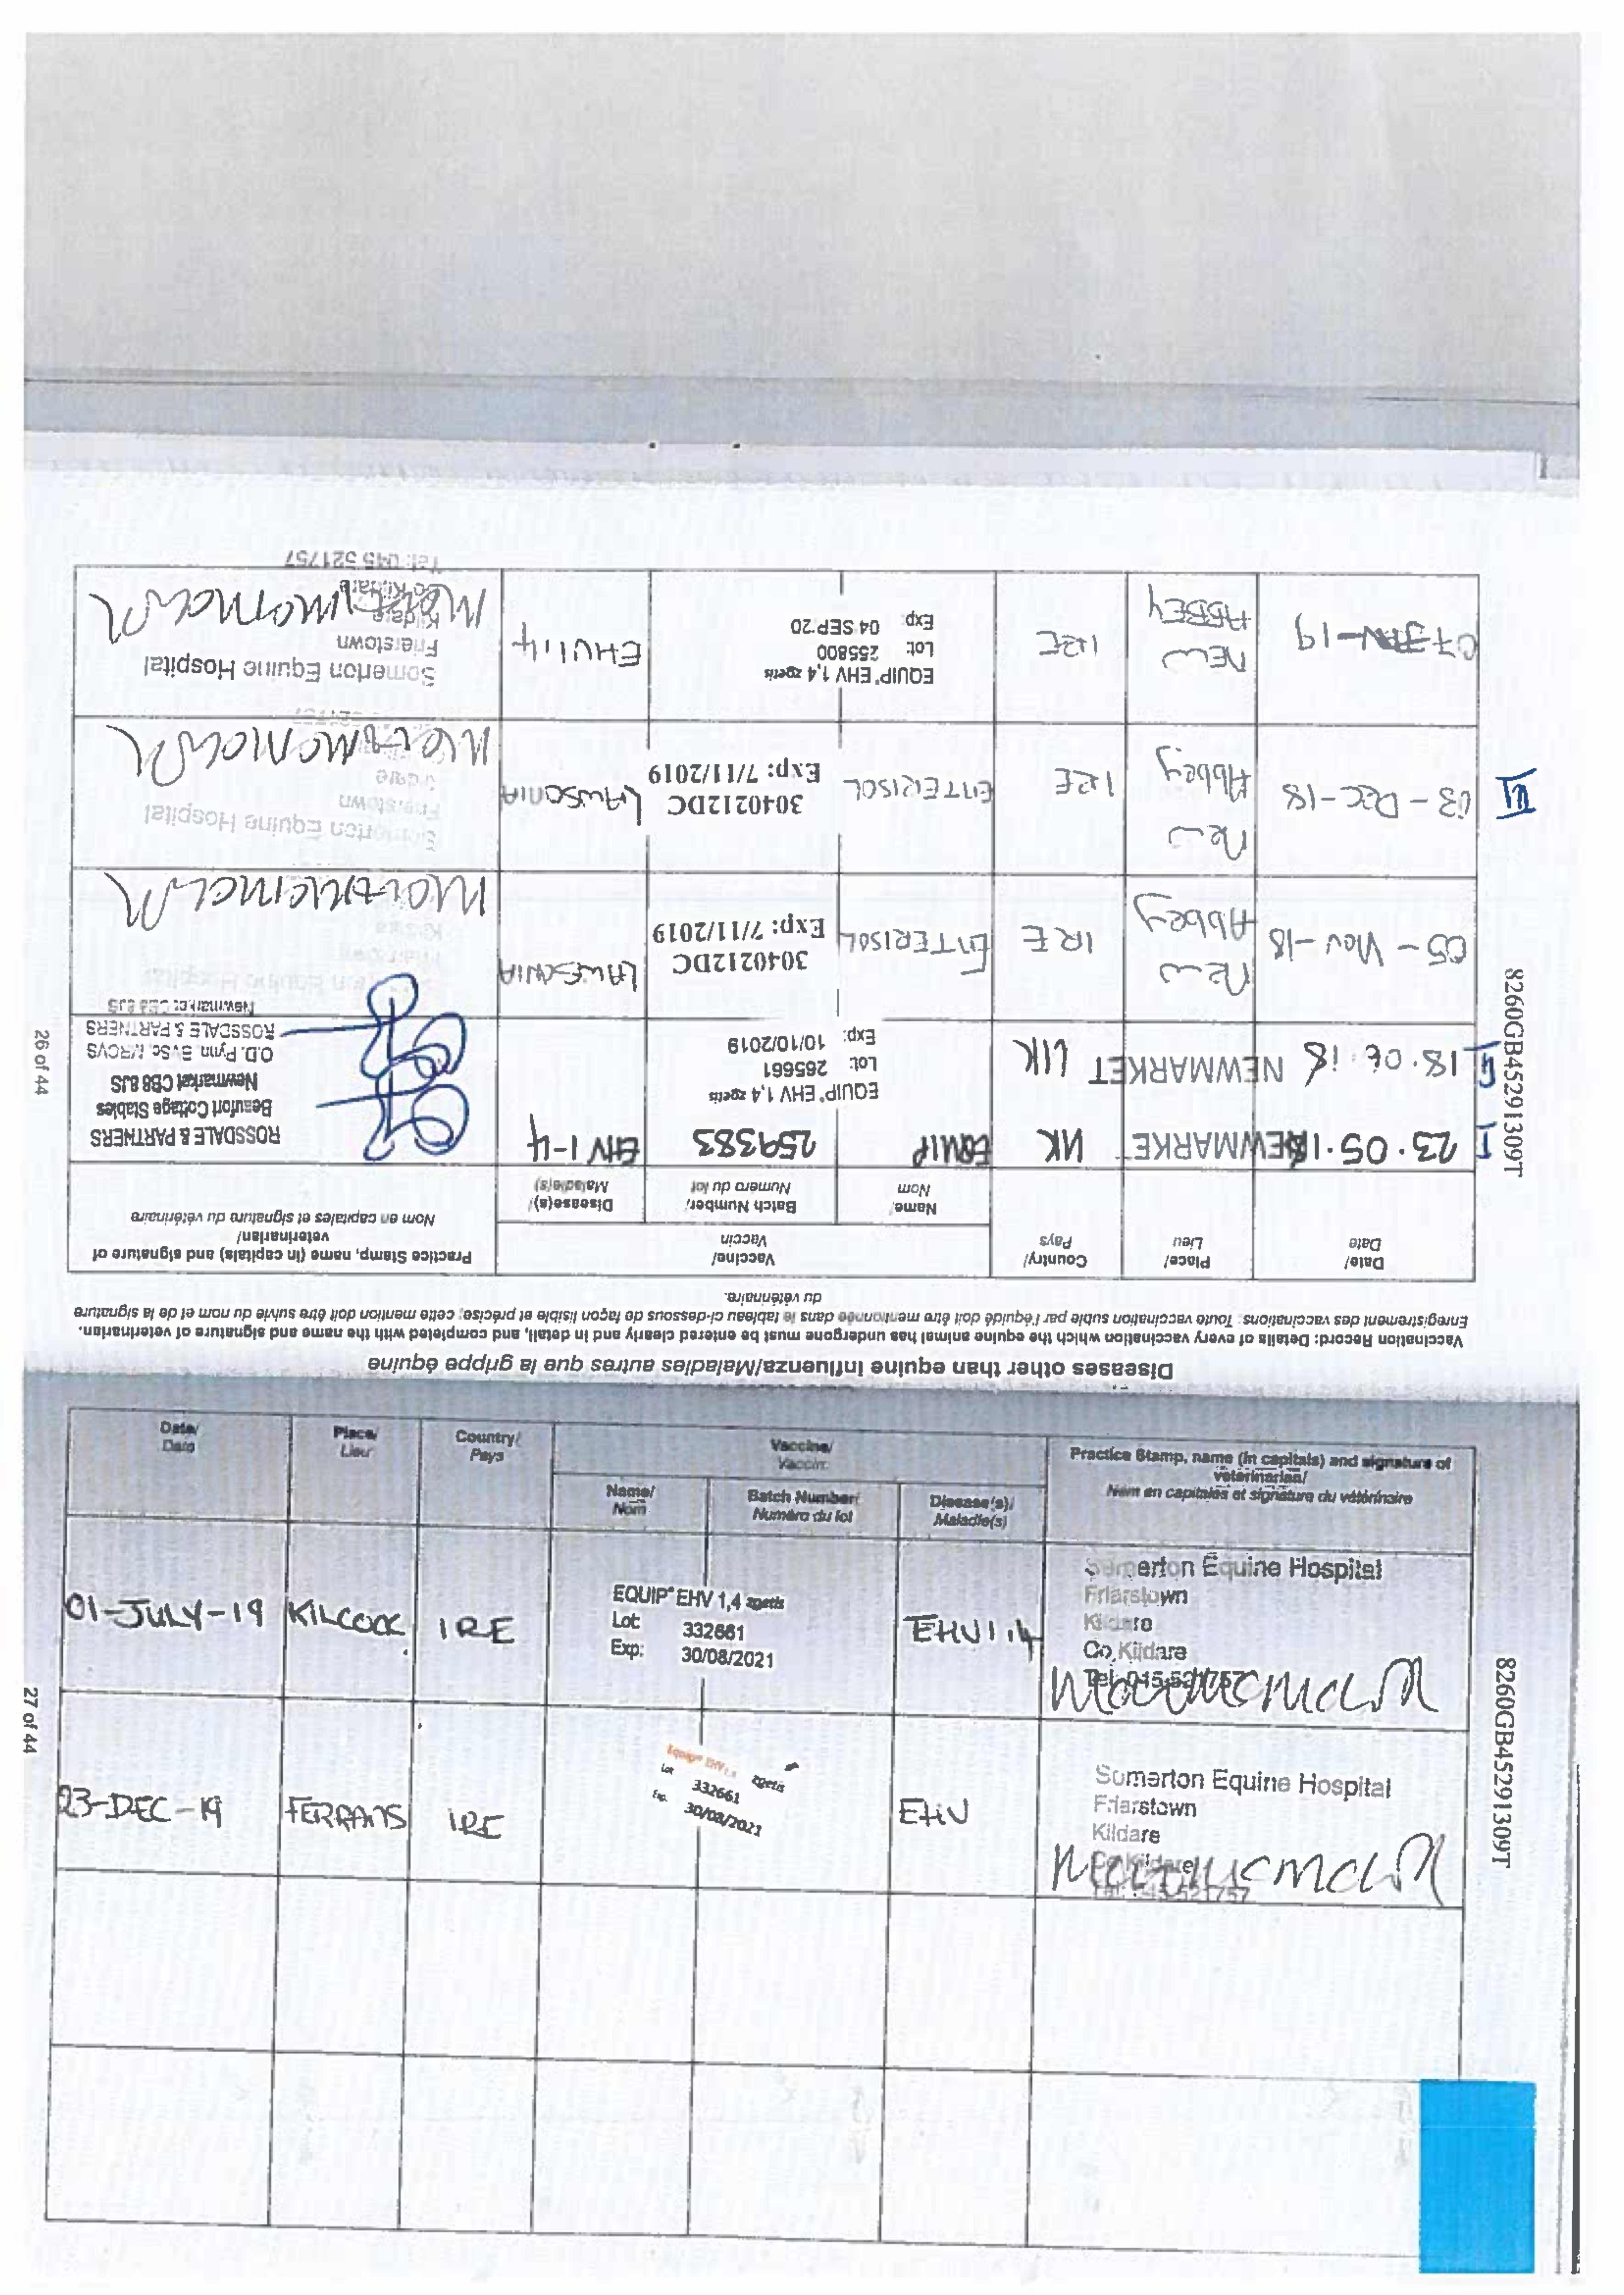 Diseases other than equine influenza/Maladies autres que la grippe équine
Vaccination Record: Details of every vaccination which the equine animal has undergone must be entered clearly and in detail, and completed with the name and signature of veterinarian.
Enregistrement des vaccinations: Toute vaccination subie par l'équidé doit être mentionnée dans le tableau ci-dessous de façon lisible et précise; cette mention doit être suivie du nom et de la signature
du vétérinaire.
Date/
Date
Place/
Lieu
Country/
Pays
Vaccine/
Vaccin
Name/
Nom
Batch Number/
Numero du lot
Disease(s)/
Maladie(s)
Practice Stamp, name (in capitals) and signature of
veterinarian/
Nom en capitales et signature du vétérinaire
I
23.05.18
NEWMARKET
UK
EQUIP
259383
EHV 1-4
ROSSDALE & PARTNERS
Beaufort Cottage Stables
Newmarket CB8 8JS
II
18.06.18
NEWMARKET
UK
EQUIP® EHV 1,4 zoetis
Lot: 265661
Exp: 10/10/2019
O.D. Pynn BVSc MRCVS
ROSSDALE & PARTNERS
Newmarket CB8 8JS
05-Nov-18
New
Abbey
IRE
ENTERISOL
3040212DC
Exp: 7/11/2019
LAWSONIA
III
03-Dec-18
New
Abbey
IRE
ENTERISOL
3040212DC
Exp: 7/11/2019
LAWSONIA
Somerton Equine Hospital
Friarstown
Kildare
07-JAN-19
NEW
ABBEY
IRE
EQUIP® EHV 1,4 zoetis
Lot: 255800
Exp: 04 SEP 20
EHV1,4
Somerton Equine Hospital
Friarstown
Kildare
Co Kildare
Tel: 045 521757
8260GB45291309T
26 of 44
Date/
Date
Place/
Lieu
Country/
Pays
Vaccine/
Vaccin
Name/
Nom
Batch Number/
Numéro du lot
Disease(s)/
Maladie(s)
Practice Stamp, name (in capitals) and signature of
veterinarian/
Nom en capitales et signature du vétérinaire
01-JULY-19
KILCOCK
IRE
EQUIP® EHV 1,4 zoetis
Lot: 332661
Exp: 30/08/2021
EHV1,4
Somerton Equine Hospital
Friarstown
Kildare
Co Kildare
Tel: 045 521757
23-DEC-19
FERRANS
IRE
Equip® EHV 1,4 zoetis
Lot 332661
Exp. 30/08/2021
EHV
Somerton Equine Hospital
Friarstown
Kildare
Co Kildare
Tel: 045 521757
8260GB45291309T
27 of 44